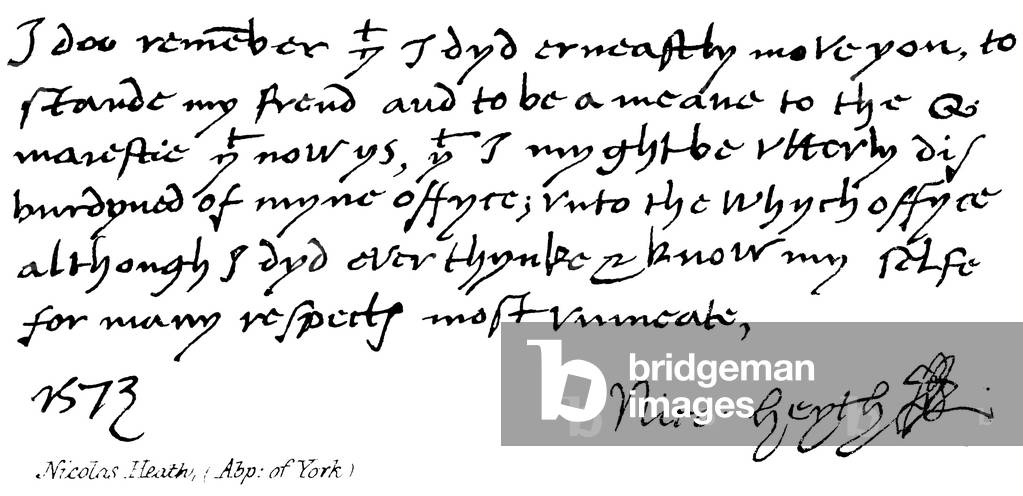 I doo remēber yt I dyd erneastly move you, to
stande my frend and to be a meane to the Q
maiestie yt now ys, yt I myght be vtterly dis
burdyned of myne offyce; vnto the whych offyce
although I dyd ever thynke & know my selfe
for many respects most vnmeate,
1573
Nico heyth
Nicolas Heath, (Abp: of York)
bridgeman
images